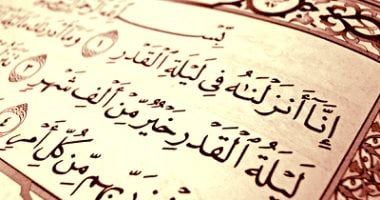 بِسْـ
إِنَّآ أَنزَلْنَٰهُ فِى لَيْلَةِ ٱلْقَدْرِ ١ وَمَآ
لَيْلَةُ ٱلْقَدْرِ خَيْرٌ مِّنْ أَلْفِ شَهْرٍ
رَبِّهِم مِّن كُلِّ أَمْرٍ ٤